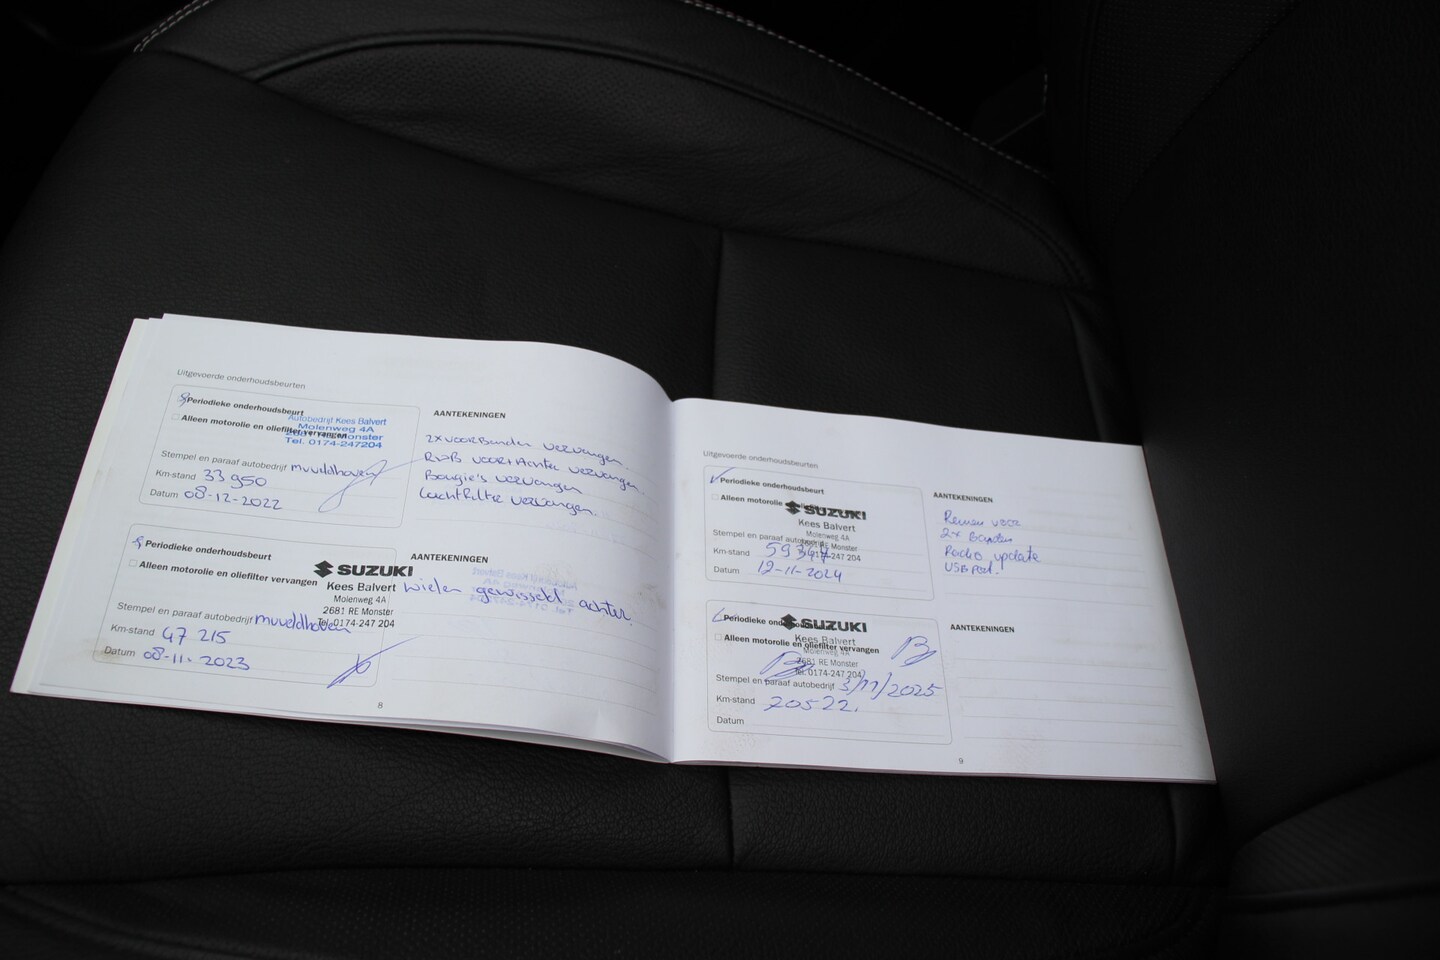 Uitgevoerde onderhoudsbeurten
Periodieke onderhoudsbeurt
Alleen motorolie en oliefilter vervangen
Autobedrijf Kees Balvert
Molenweg 4A
Monster
Tel. 0174-247204
Stempel en paraaf autobedrijf muveldhoven
Km-stand 33950
Datum 08-12-2022
AANTEKENINGEN
2x voorBanden vervangen.
voor+Achter vervangen.
Bougie's vervangen
Luchtfilter vervangen.
Periodieke onderhoudsbeurt
Alleen motorolie en oliefilter vervangen
SUZUKI
Kees Balvert
Molenweg 4A
2681 RE Monster
Tel. 0174-247 204
Stempel en paraaf autobedrijf muveldhoven
Km-stand 47 215
Datum 08-11-2023
AANTEKENINGEN
wielen gewisseld achter.
8
Uitgevoerde onderhoudsbeurten
Periodieke onderhoudsbeurt
Alleen motorolie en oliefilter
SUZUKI
Kees Balvert
Molenweg 4A
2681 RE Monster
Tel. 0174-247 204
Stempel en paraaf autobedrijf
Km-stand 59347
Datum 12-11-2024
AANTEKENINGEN
Remen voor
2x Banden
Radio update
USB port.
Periodieke onderhoudsbeurt
Alleen motorolie en oliefilter vervangen
SUZUKI
Kees Balvert
Molenweg 4A
2681 RE Monster
Tel. 0174-247 204
Stempel en paraaf autobedrijf 3/11/2025
Km-stand 70522.
Datum
AANTEKENINGEN
9